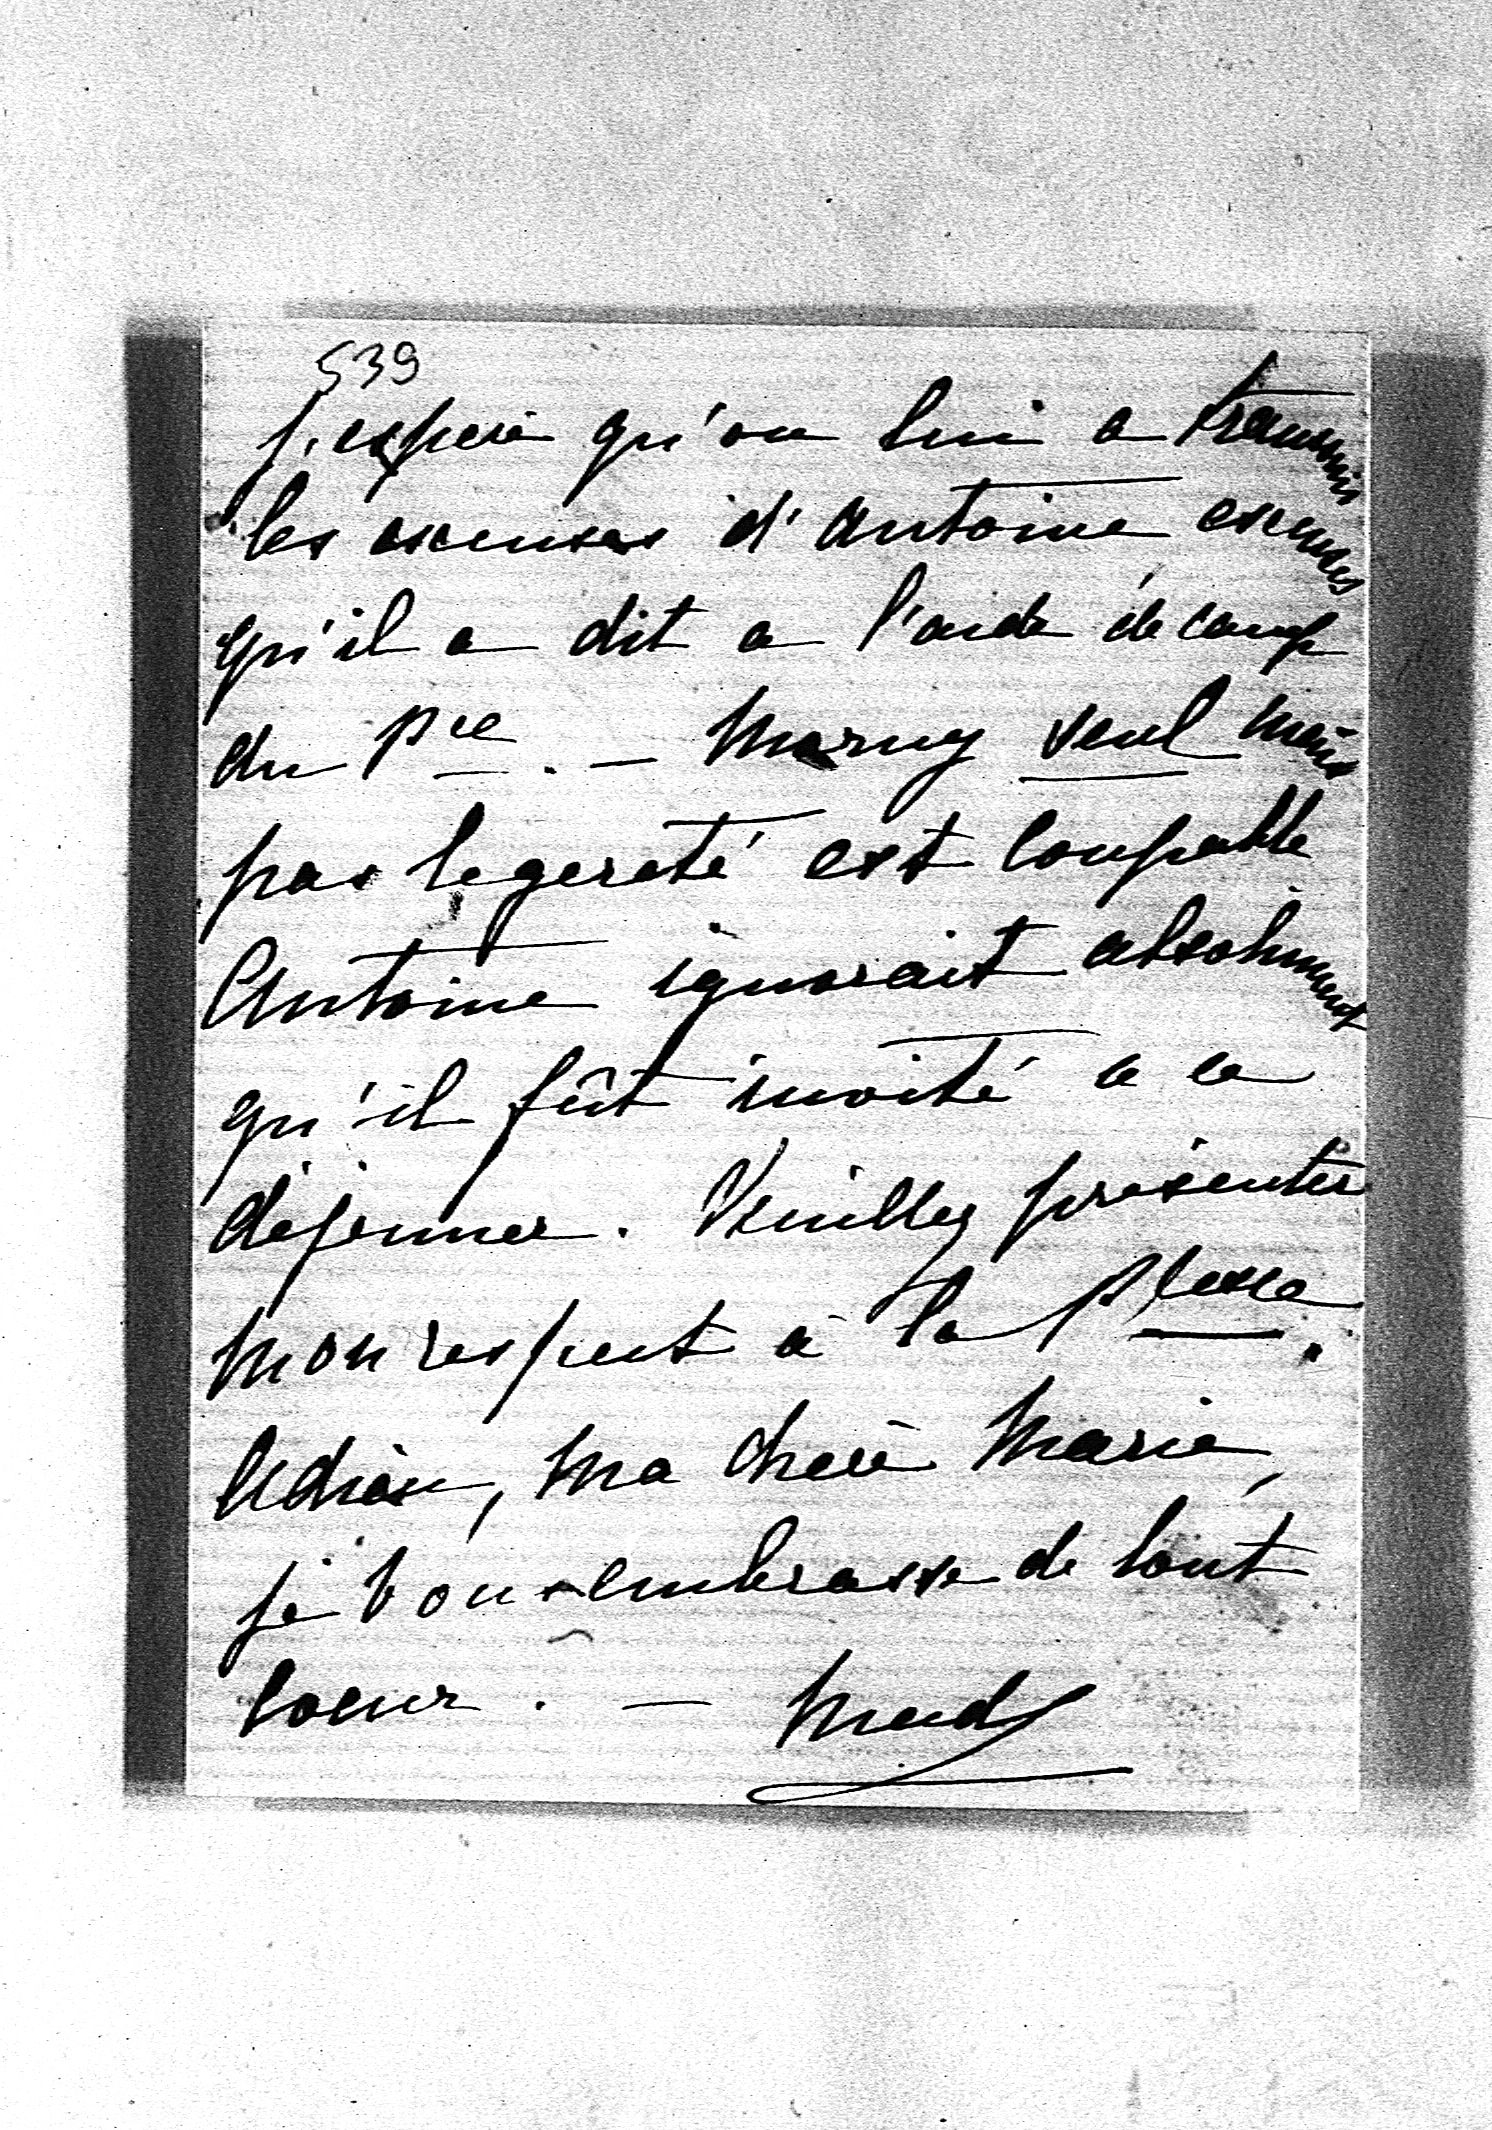 539
J'espère qu'on lui a transmis
les excuses d'Antoine excuses
qu'il a dit a l'aide de camp
du Pce. — Morny seul mais
pas legereté est coupable
Antoine ignorait absolument
qu'il fût invité a ce
déjeuner. Veuillez présenter
mon respect à la Pcesse.
Adieu, ma chère Marie,
je vous embrasse de tout
coeur. —